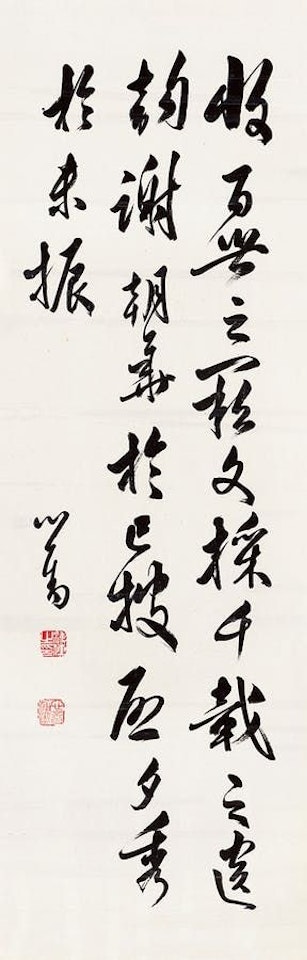 收百世之闕文採千載之遺
韵謝朝華於已披启夕秀
於未振
心畬